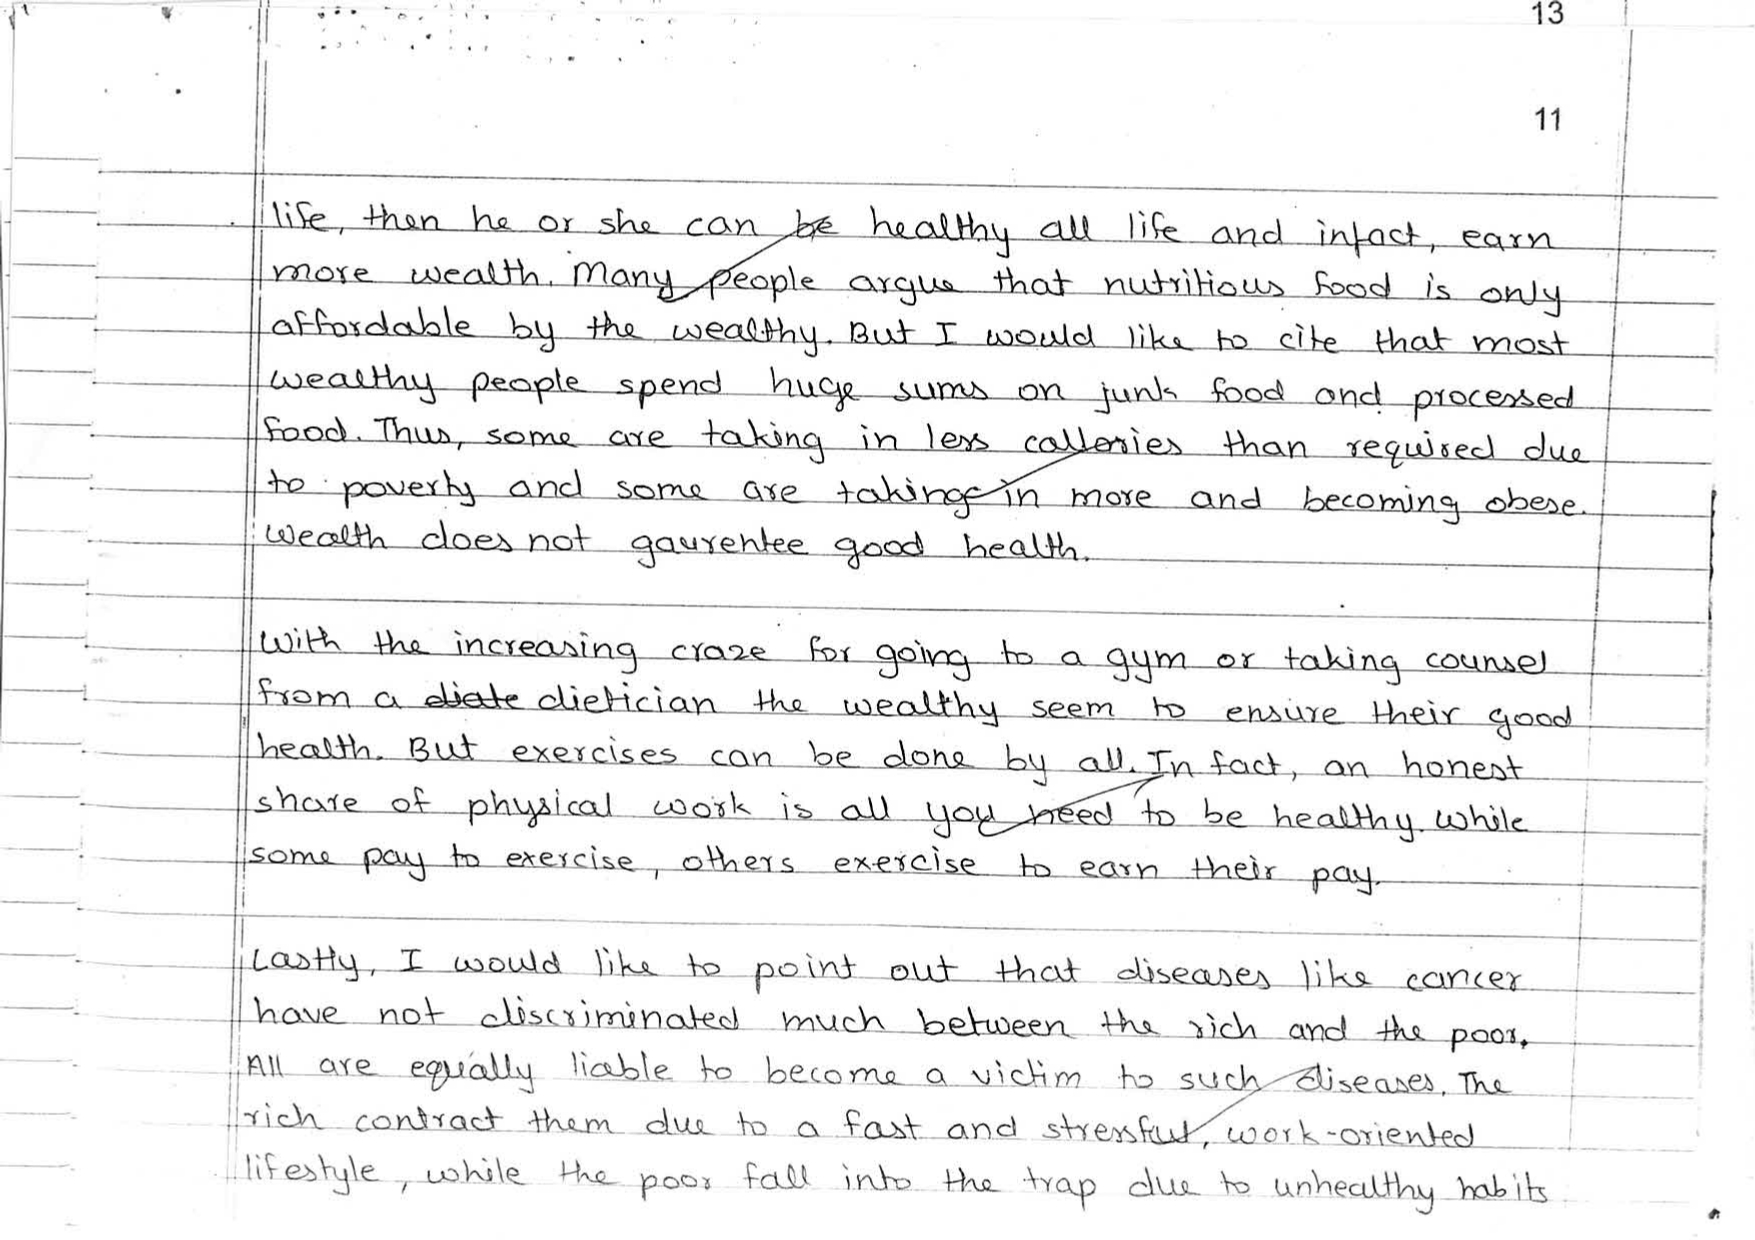 13
11
life, then he or she can be healthy all life and infact, earn
more wealth. Many people argue that nutritious food is only
affordable by the wealthy. But I would like to cite that most
wealthy people spend huge sums on junk food and processed
food. Thus, some are taking in less calleries than required due
to poverty and some are taking in more and becoming obese.
Wealth does not gaurentee good health.
With the increasing craze for going to a gym or taking counsel
from a diate dietician the wealthy seem to ensure their good
health. But exercises can be done by all. In fact, an honest
share of physical work is all you need to be healthy. While
some pay to exercise, others exercise to earn their pay.
Lastly, I would like to point out that diseases like cancer
have not discriminated much between the rich and the poor.
All are equally liable to become a victim to such diseases. The
rich contract them due to a fast and stressful, work-oriented
lifestyle, while the poor fall into the trap due to unhealthy habits